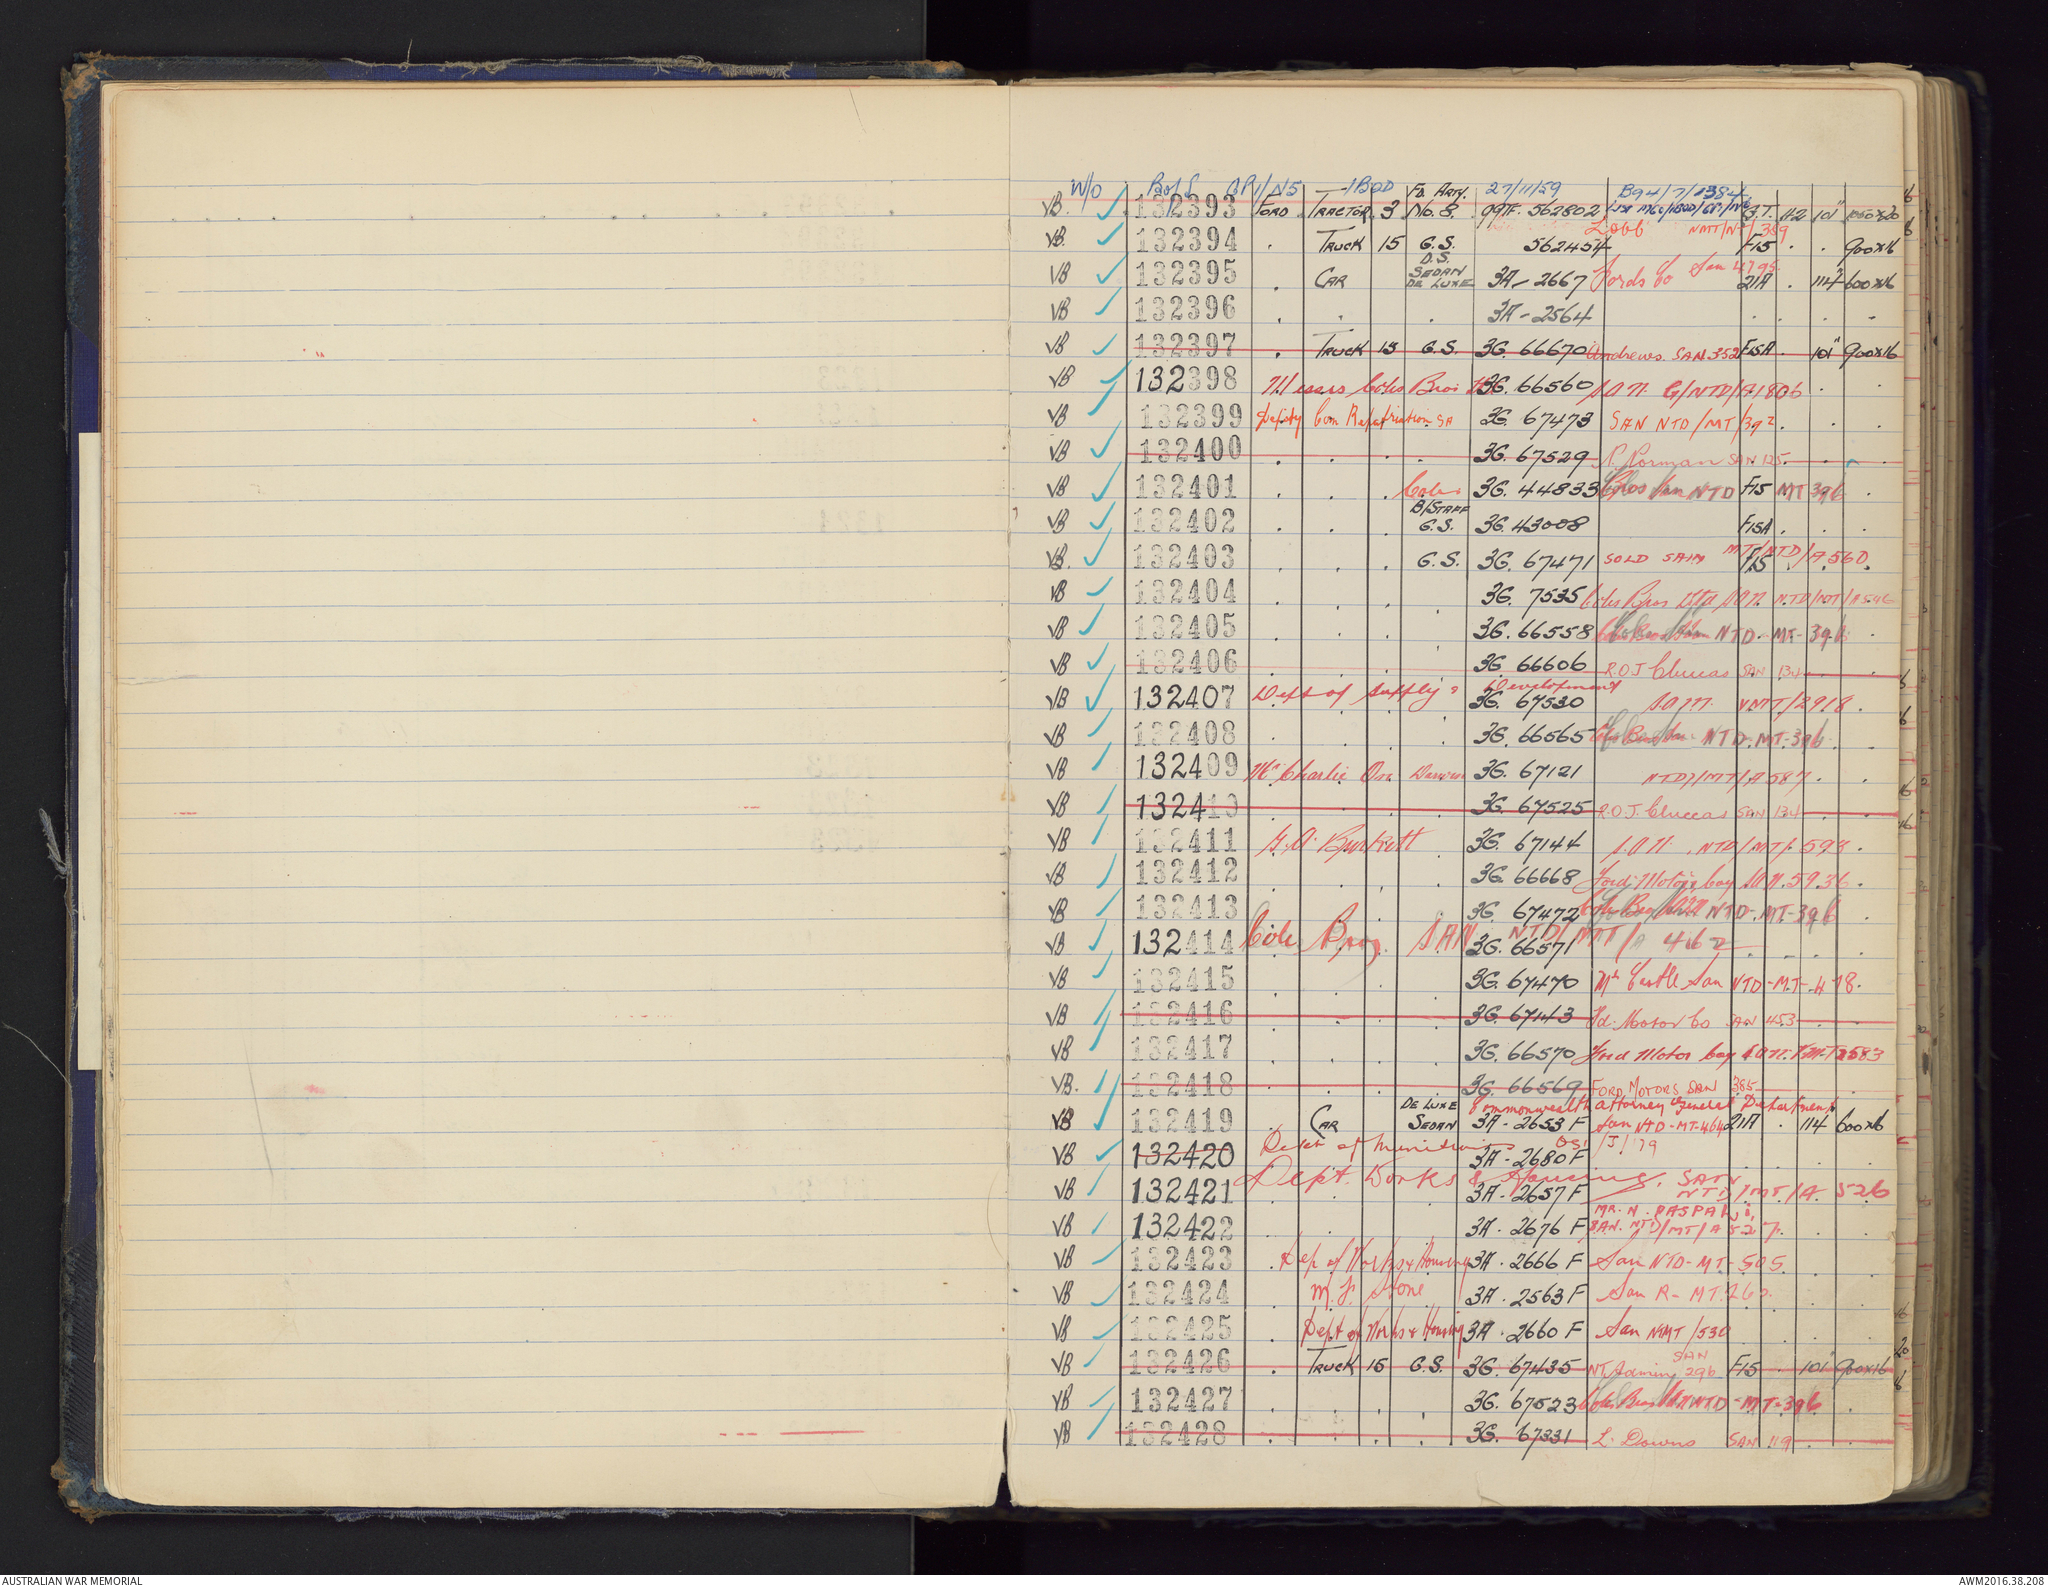 W/O B of S GP1/N5 /BOD 27/11/59 B94/7/1384
VB. 132393 FORD TRACTOR 3 FD. ARTY. No. 8. 99TF. 562802 G.T. 42 101" 1050x20
VB. 132394 . TRUCK 15 G.S. 562454 Lobb NMTT/NT/389 F15 . . 900x16
VB 132395 . CAR D.S. SEDAN DE LUXE 3A-2667 Fords Co San 4795 21A . 114" 600x16
VB 132396 . . . 3A-2564 . . . .
VB 132397 . TRUCK 15 G.S. 3G. 66670 Andrews. SAN. 352 F15A . 101" 900x16
VB 132398 Messrs Coles Bros 3G. 66560 S.A.N. G/NTD/A1806 . .
VB 132399 Deputy Com Repatriation SA 3G. 67473 SAN NTD/MT/392 . . .
VB 132400 . . . . 3G. 67529 R. Norman SAN 125 . . .
VB 132401 . . . Coles 3G. 44833 Bros San NTD F15 MT 396 .
VB 132402 . . . B/STAFF G.S. 3G. 43008 F15A . . .
VB. 132403 . . . G.S. 3G. 67471 SOLD SAN MT/NTD/A.560 F15 . . .
VB 132404 . . . . 3G. 7535 Coles Bros Ltd S.A.N. NTD/MT/A546
VB 132405 . . . . 3G. 66558 Coles Bros San NTD-MT-396 .
VB 132406 . . . . 3G 66606 R.O.J. Cluccas SAN 134 . . .
VB 132407 Dept of Supply & Development 3G. 67530 S.A.N. VMT/2918 .
VB 132408 . . . . 3G. 66565 Coles Bros San NTD.MT.396 .
VB 132409 Mr Charlie On Darwin 3G. 67121 NTD/MT/A587 . .
VB 132410 . . . . 3G. 67525 R.O.J. Cluccas SAN 134 . .
VB 132411 G.A. Burkett . 3G. 67144 S.A.N. NTD/MT/593 .
VB 132412 . . . . 3G. 66668 Ford Motor Coy S.A.N. 5936 .
VB 132413 . . . 3G. 67472 Coles Bros San NTD-MT-396 .
VB 132414 Cole Bros. SAN NTD/MT/A 462 3G. 66571 . . .
VB 132415 . . . . 3G. 67470 Mr Castle San NTD-MT-478 .
VB 132416 . . . . 3G. 67143 Fd. Motor Co SAN 453 . .
VB 132417 . . . . 3G. 66570 Ford Motor Coy S.A.N. VMT2583
VB. 132418 . . . . 3G. 66569 FORD MOTORS SAN 385
VB 132419 . CAR DE LUXE SEDAN 3A-2653 F Commonwealth Attorney General Department San NTD-MT-464 21A . 114 600x16
VB 132420 Dept of Munitions 3A-2680 F OS1/J/179 . . . .
VB 132421 Dept. Works & Housing. 3A-2657 F SAN NTD/MT/A 526
VB 132422 . . . 3A-2676 F MR. N. PASPALI, SAN. NTD/MT/A527. . .
VB 132423 . Dep of Works & Housing 3A-2666 F San NTD-MT-505 . . .
VB 132424 . M.J. Stone 3A-2563 F San R-MT.260 . . .
VB 132425 . Dept of Works & Housing 3A-2660 F San NMT/530 . . .
VB 132426 . TRUCK 15 G.S. 3G. 67435 NT Admin SAN 296 F15 . 101" 900x16
VB 132427 . . . . 3G. 67523 Coles Bros San NTD-MT-396
VB 132428 . . . . 3G. 67331 L. Downs SAN 119 . .
AUSTRALIAN WAR MEMORIAL
AWM2016.38.208